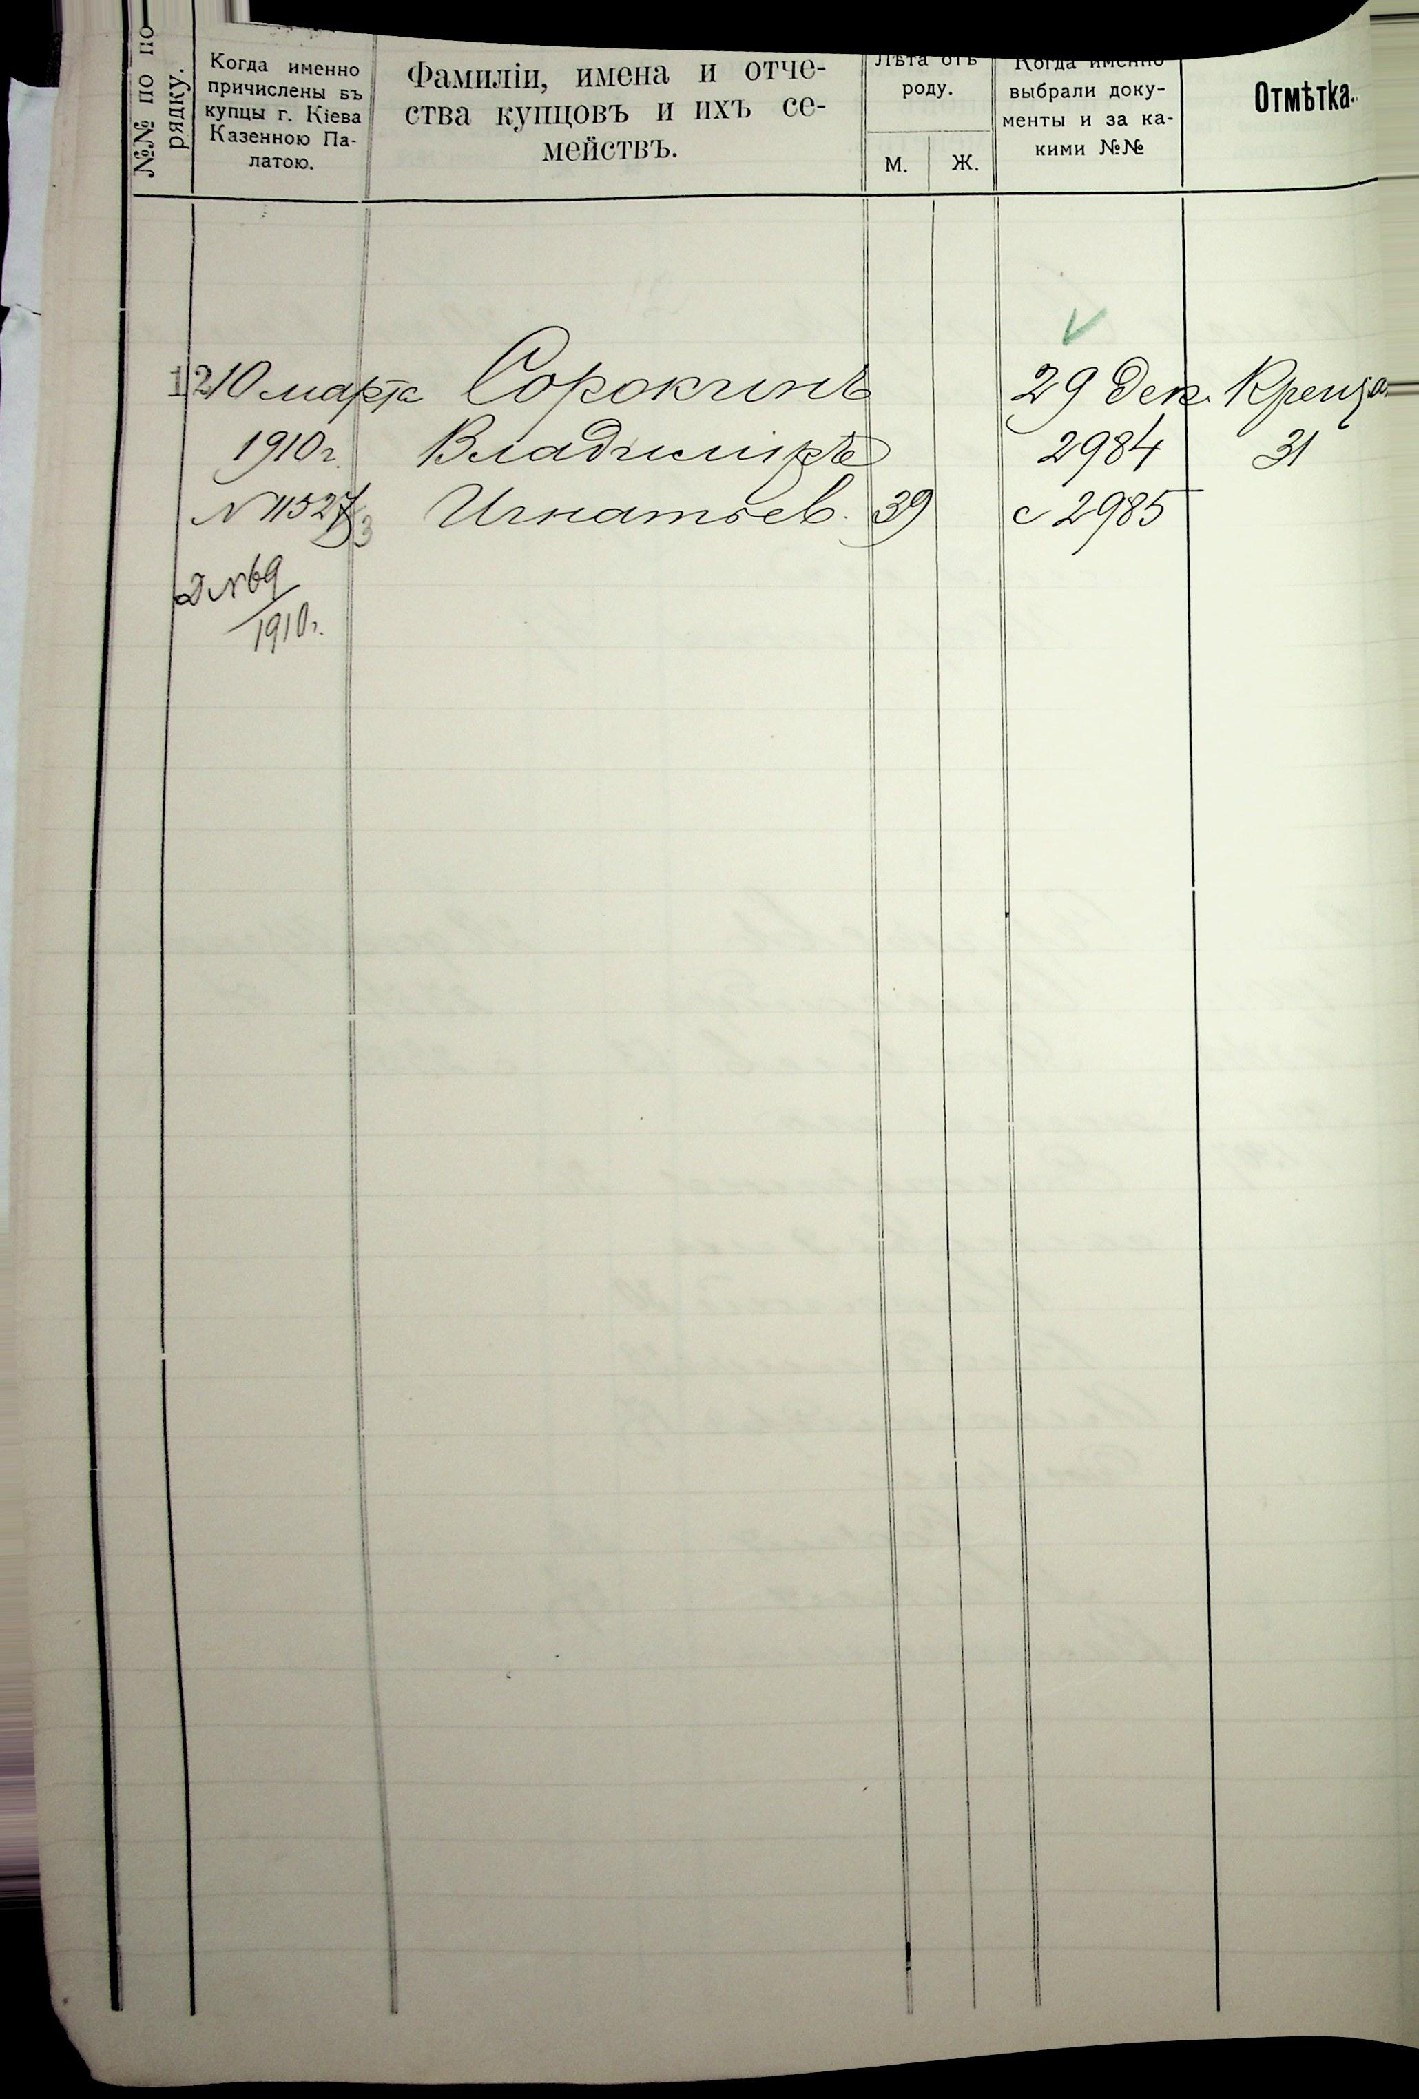 №№ по по-
рядку.
Когда именно
причислены въ
купцы г. Кіева
Казенною Па-
латою.
Фамиліи, имена и отче-
ства купцовъ и ихъ се-
мействъ.
Лѣта отъ
роду.
М.
Ж.
Когда именно
выбрали доку-
менты и за ка-
кими №№
Отмѣтка.
12
10 марта
1910 г.
№ 11527/3
Д №69
1910 г.
Сорокинъ
Владиміръ
Игнатьев.
39
29 Дек.
2984
с 2985
Креща
31